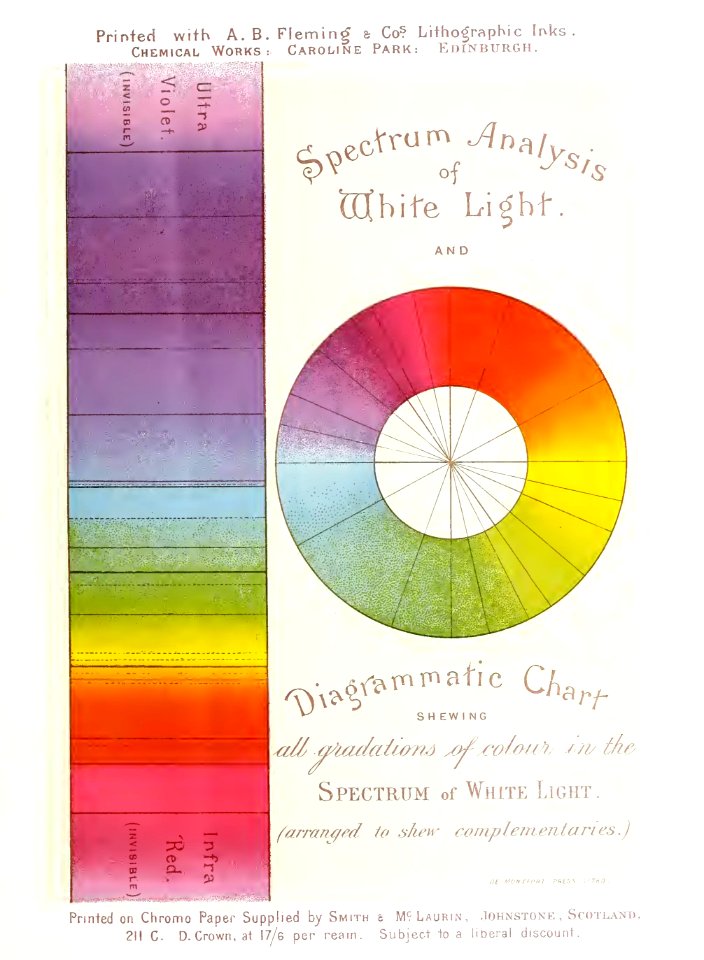 Printed with A. B. Fleming & Cos Lithographic Inks.
Chemical Works: Caroline Park: Edinburgh.
Ultra
Violet.
(INVISIBLE)
Spectrum Analysis
of
White Light.
AND
Diagrammatic Chart
SHEWING
all gradations of colour in the
Spectrum of White Light.
(arranged to shew complementaries.)
Infra
Red.
(INVISIBLE)
DE MONTFORT PRESS, LITHO.
Printed on Chromo Paper Supplied by Smith & McLaurin, Johnstone, Scotland.
211 C. D. Crown, at 17/6 per ream. Subject to a liberal discount.